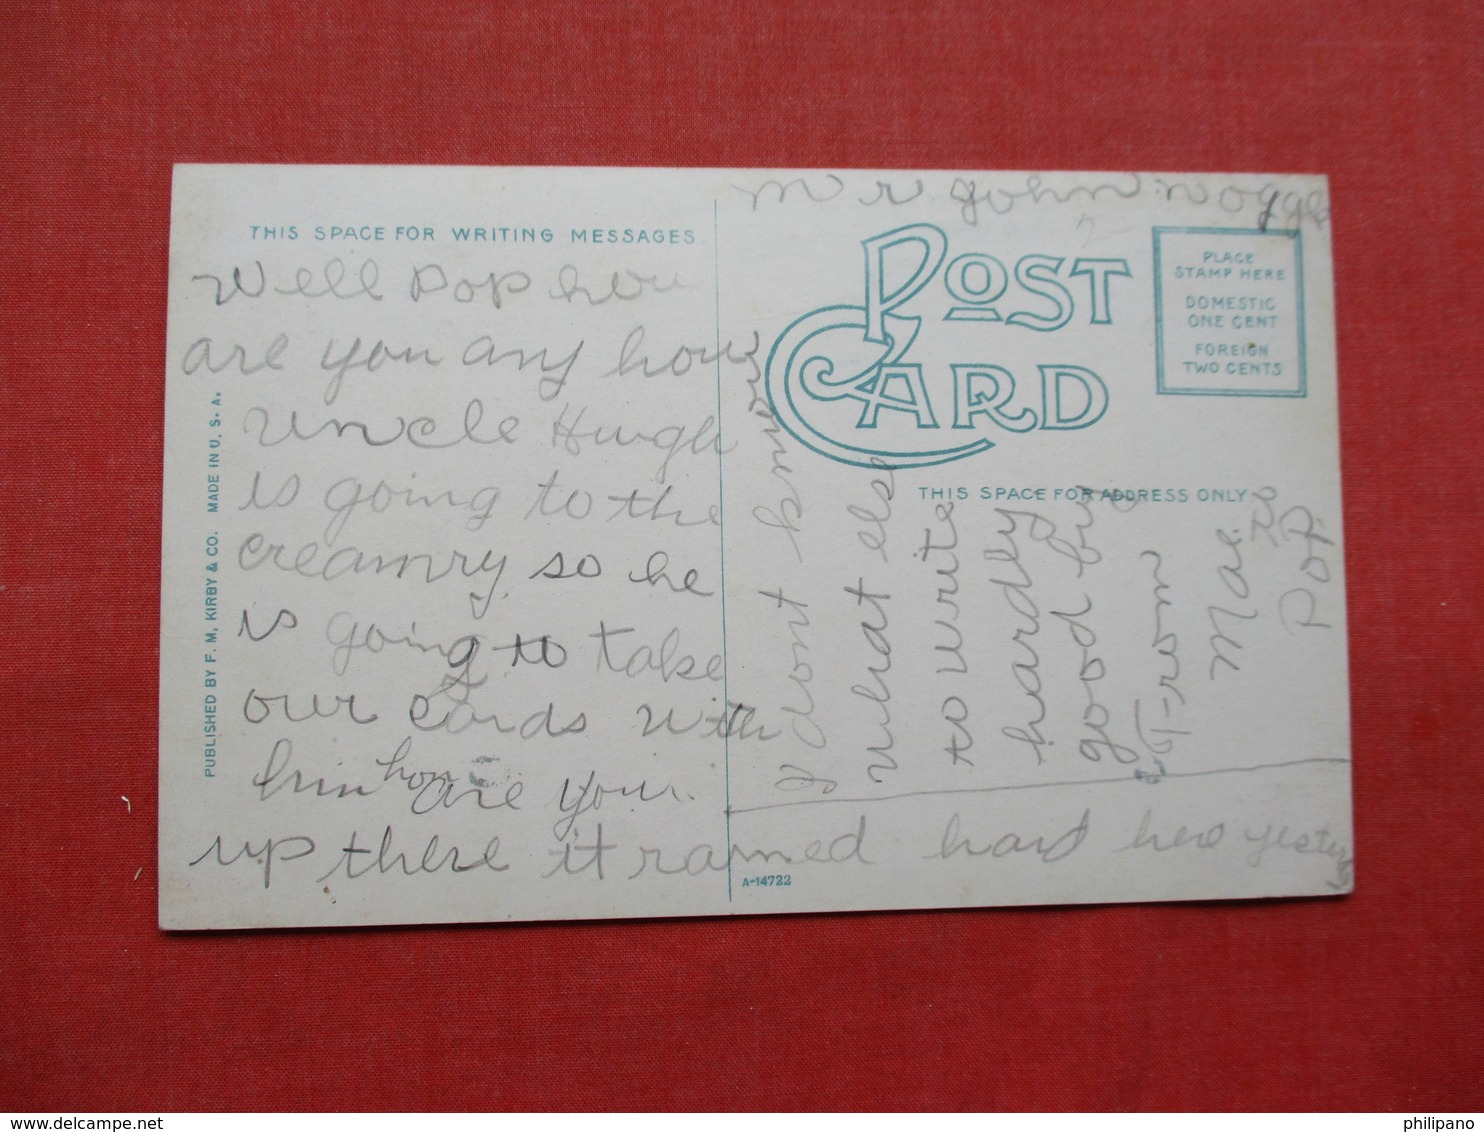 mr John noggle
THIS SPACE FOR WRITING MESSAGES
Well Pop how
are you any how
Uncle Hugh
is going to the
creamry so he
is going to take
our cards with
him how are you
up there it rained hard here yester
I dont know
what else
to write
hardly
good by
From
Mae
to
Pop
POST
CARD
PLACE
STAMP HERE
DOMESTIC
ONE CENT
FOREIGN
TWO CENTS
THIS SPACE FOR ADDRESS ONLY
PUBLISHED BY F. M. KIRBY & CO. MADE IN U. S. A.
A-14722
delcampe.net
philipano